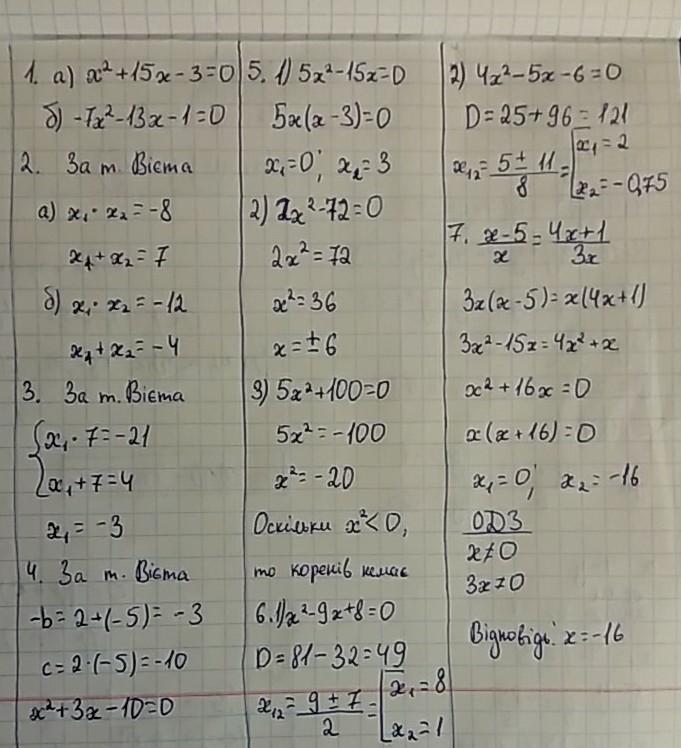 1. а) x²+15x-3=0
б) -7x²-13x-1=0
2. За т. Вієта
а) x₁·x₂=-8
x₁+x₂=7
б) x₁·x₂=-12
x₁+x₂=-4
3. За т. Вієта
{x₁·7=-21
x₁+7=4
x₁=-3
4. За т. Вієта
-b=2+(-5)=-3
c=2·(-5)=-10
x²+3x-10=0
5. 1) 5x²-15x=0
5x(x-3)=0
x₁=0; x₂=3
2) 2x²-72=0
2x²=72
x²=36
x=±6
3) 5x²+100=0
5x²=-100
x²=-20
Оскільки x²<0,
то коренів немає
6. 1) x²-9x+8=0
D=81-32=49
x₁₂=(9±7)/2=[x₁=8
x₂=1
2) 4x²-5x-6=0
D=25+96=121
x₁₂=(5±11)/8=[x₁=2
x₂=-0,75
7. (x-5)/x=(4x+1)/3x
3x(x-5)=x(4x+1)
3x²-15x=4x²+x
x²+16x=0
x(x+16)=0
x₁=0; x₂=-16
ОДЗ
x≠0
3x≠0
Відповідь: x=-16